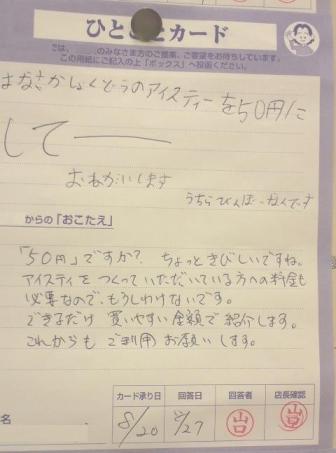 ひと とカード
では、 のみなさま方のご提案、ご要望をお待ちしています。
この用紙にご記入の上「ボックス」へ投函ください。
はなさかしょくどうのアイスティーを50円に
してーーー
おねがいします
うちらびんぼーなんです
からの「おこたえ」
「50円」ですか? ちょっときびしいですね。
アイスティをつくっていただいている方への料金も
必要なので、もうしわけないです。
できるだけ 買いやすい金額で紹介します。
これからも ご利用 お願いします。
カード承り日 回答日 回答者 店長確認
名 8/20 /27 山口